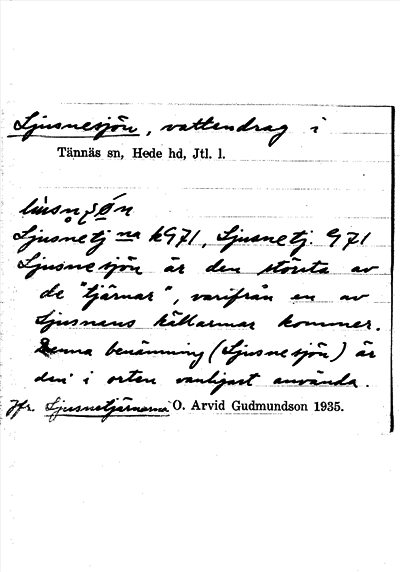 Ljusnesjön, vattendrag i
Tännäs sn, Hede hd, Jtl. l.
Ljusnetj na kG71, Ljusnetj. G71
Ljusnesjön är den största av
de "tjärnar", varifrån en av
Ljusnans källarmar kommer.
Denna benämning (Ljusnesjön) är
den i orten vanligast använda.
Jfr. Ljusnetjärnarna O. Arvid Gudmundson 1935.